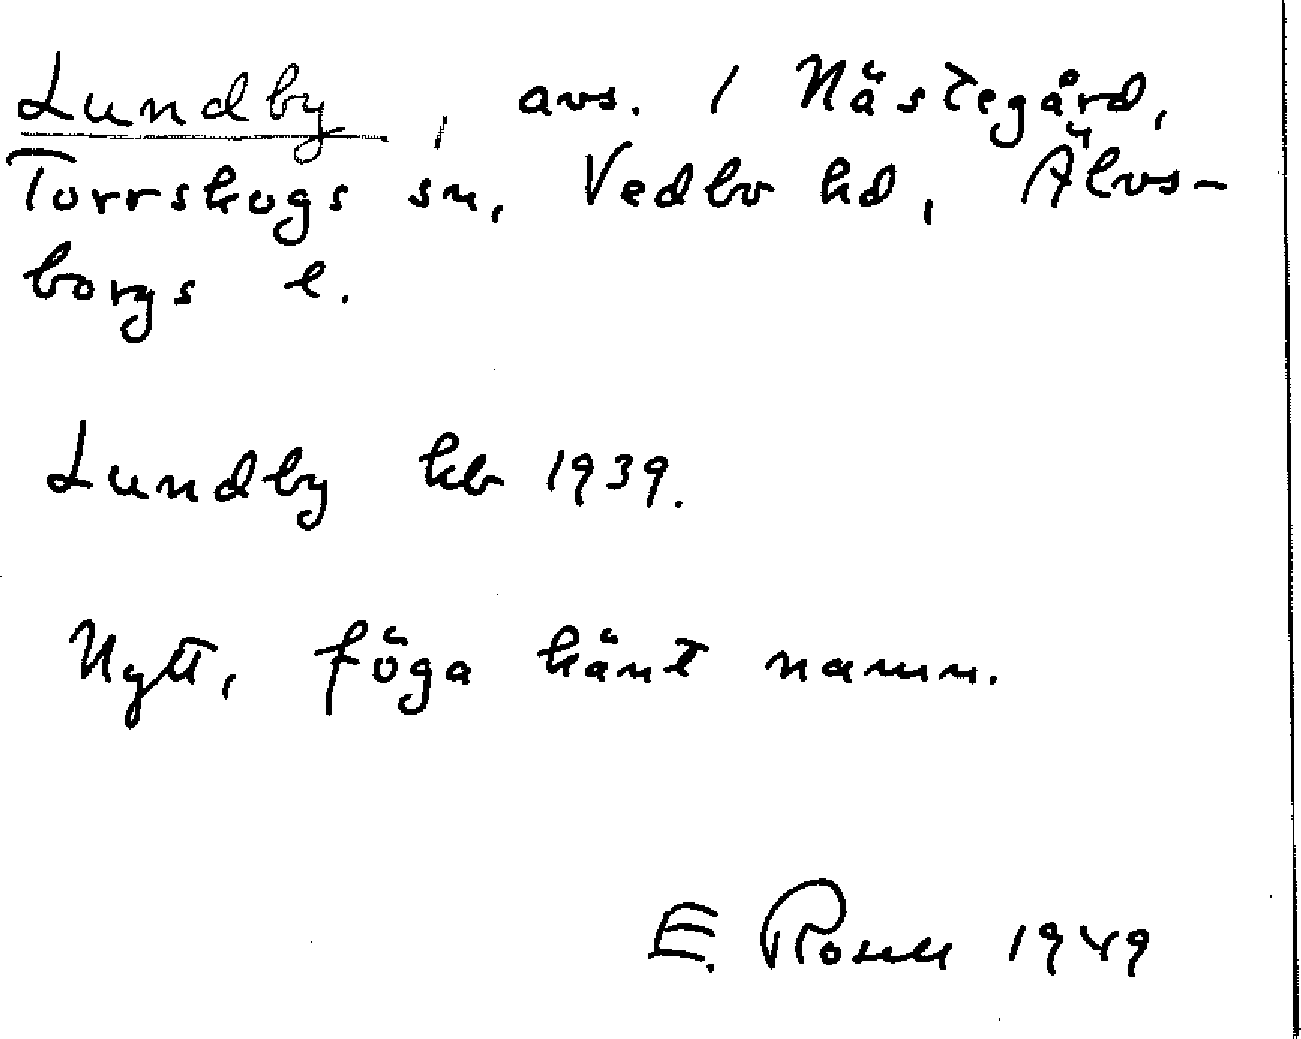 Lundby, avs. / Nästegård,
Torrskogs sn, Vedbo hd, Älvs-
borgs l.
Lundby kb 1939.
Nytt, föga känt namn.
E. Rosell 1949